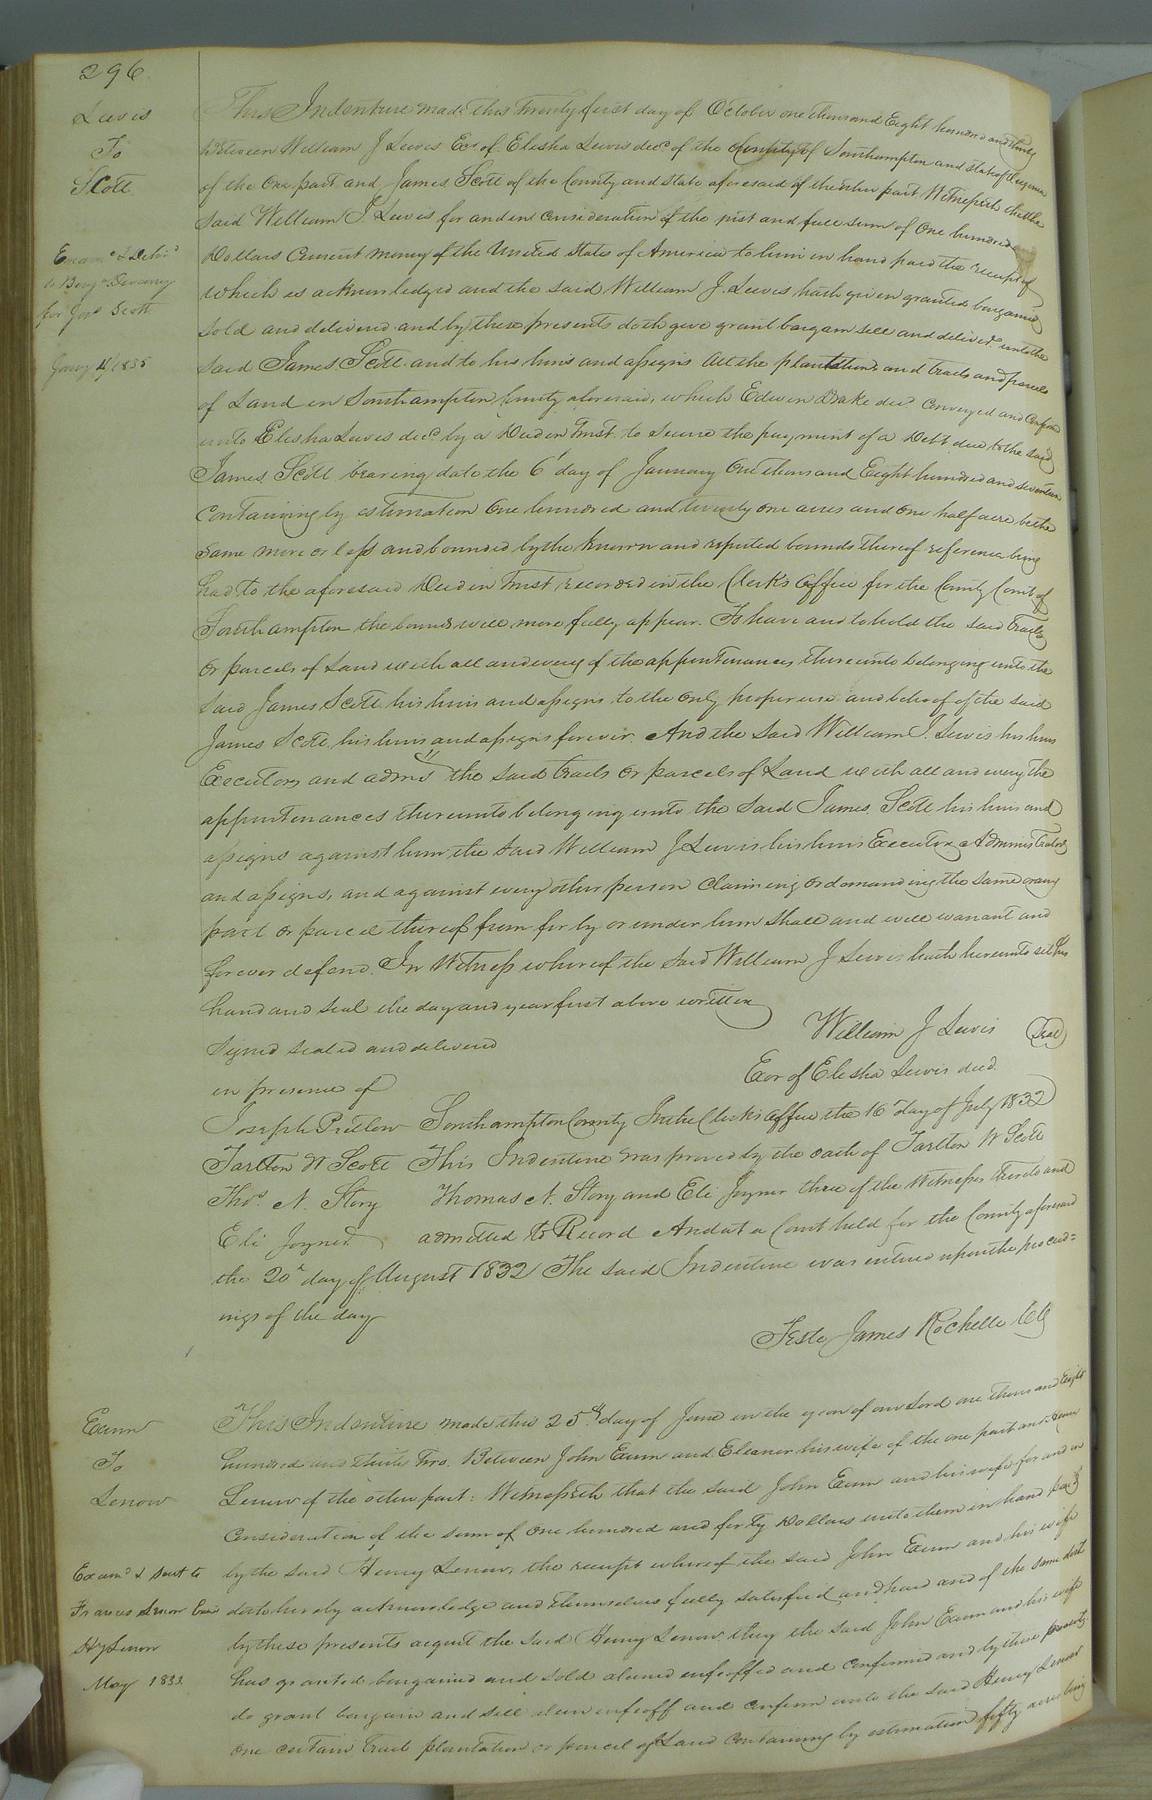 296
Lewis
To
Scott
This Indenture made this Twenty first day of October one thousand Eight hundred and thirty
between William J Lewis Exr of Elisha Lewis decd of the County of Southampton and state of Virginia
of the one part and James Scott of the County and State aforesaid of the other part Witnesseth that the
said William J Lewis for and in Consideration of the just and full sum of One hundred and
Dollars Current money of the United States of America to him in hand paid the receipt of
which is acknowledged and the said William J. Lewis hath given granted bargained
sold and delivered and by these presents doth give grant bargain sell and deliver unto the
said James Scott and to his heirs and assigns All the plantations and tracts and parcels
of Land in Southampton County aforesaid, which Edwin Drake decd Conveyed and
unto Elisha Lewis decd by a Deed in Trust to secure the payment of a Debt due to the said
James Scott bearing date the 6 day of January One thousand Eight hundred and seventeen
Containing by estimation One hundred and twenty one acres and one half acre be the
same more or less and bounded by the known and reputed bounds thereof reference being
had to the aforesaid Deed in Trust recorded in the Clerks Office for the County Court of
Southampton the bounds will more fully appear. To have and to hold the said tracts
or parcels of Land with all and every of the appurtenances thereunto belonging unto the
said James Scott his heirs and assigns to the only proper use and behoof of the said
James Scott his heirs and assigns forever. And the Said William J. Lewis his heirs
Executors and admrs the said tracts or parcels of Land with all and every the
appurtenances thereunto belonging unto the said James Scott his heirs and
assigns against him the said William J Lewis his heirs Executors Administrators
and assigns, and against every other person Claiming or demanding the same or any
part or parcel thereof from for by or under him Shall and will warrant and
forever defend. In Witness whereof the said William J Lewis hath hereunto set his
hand and seal the day and year first above written
Signed sealed and delivered
in presence of
William J Lewis Seal
Exr of Elisha Lewis decd.
Examd & Delivd
to Benj Devaney
for Jas Scott
Jany 11/1835
Joseph Pretlow
Tarlton W Scott
Thos N. Story
Eli Joyner
Southampton County In the Clerks Office the 16 day of July 1832
This Indenture was proved by the oath of Tarlton W Scott
Thomas N. Story and Eli Joyner three of the Witnesses thereto and
admitted to Record And at a Court held for the County aforesaid
the 20 day of August 1832 The said Indenture was entered upon the proceed=
ings of the day
Teste James Rochelle CC
Eunn
To
Lenow
This Indenture made this 25th day of June in the year of our Lord one thousand Eight
hundred and Thirty Two. Between John Eunn and Eleanor his wife of the one part and
Lenow of the other part: Witnesseth that the said John Eunn and his wife for and in
Consideration of the sum of one hundred and forty Dollars unto them in hand paid
by the said Henry Lenow, the receipt whereof the said John Eunn and his wife
doth hereby acknowledge and themselves fully satisfied and paid and of the same doth
by these presents acquit the said Henry Lenow they the said John Eunn and his wife
has granted bargained and sold aliened enfeoffed and confirmed and by these presents
do grant bargain and sell alien enfeoff and confirm unto the said Henry Lenow
one certain tract plantation or parcel of Land Containing by estimation fifty acres being
Examd & sent to
Frances Lenow
Hy Lenow
May 1833